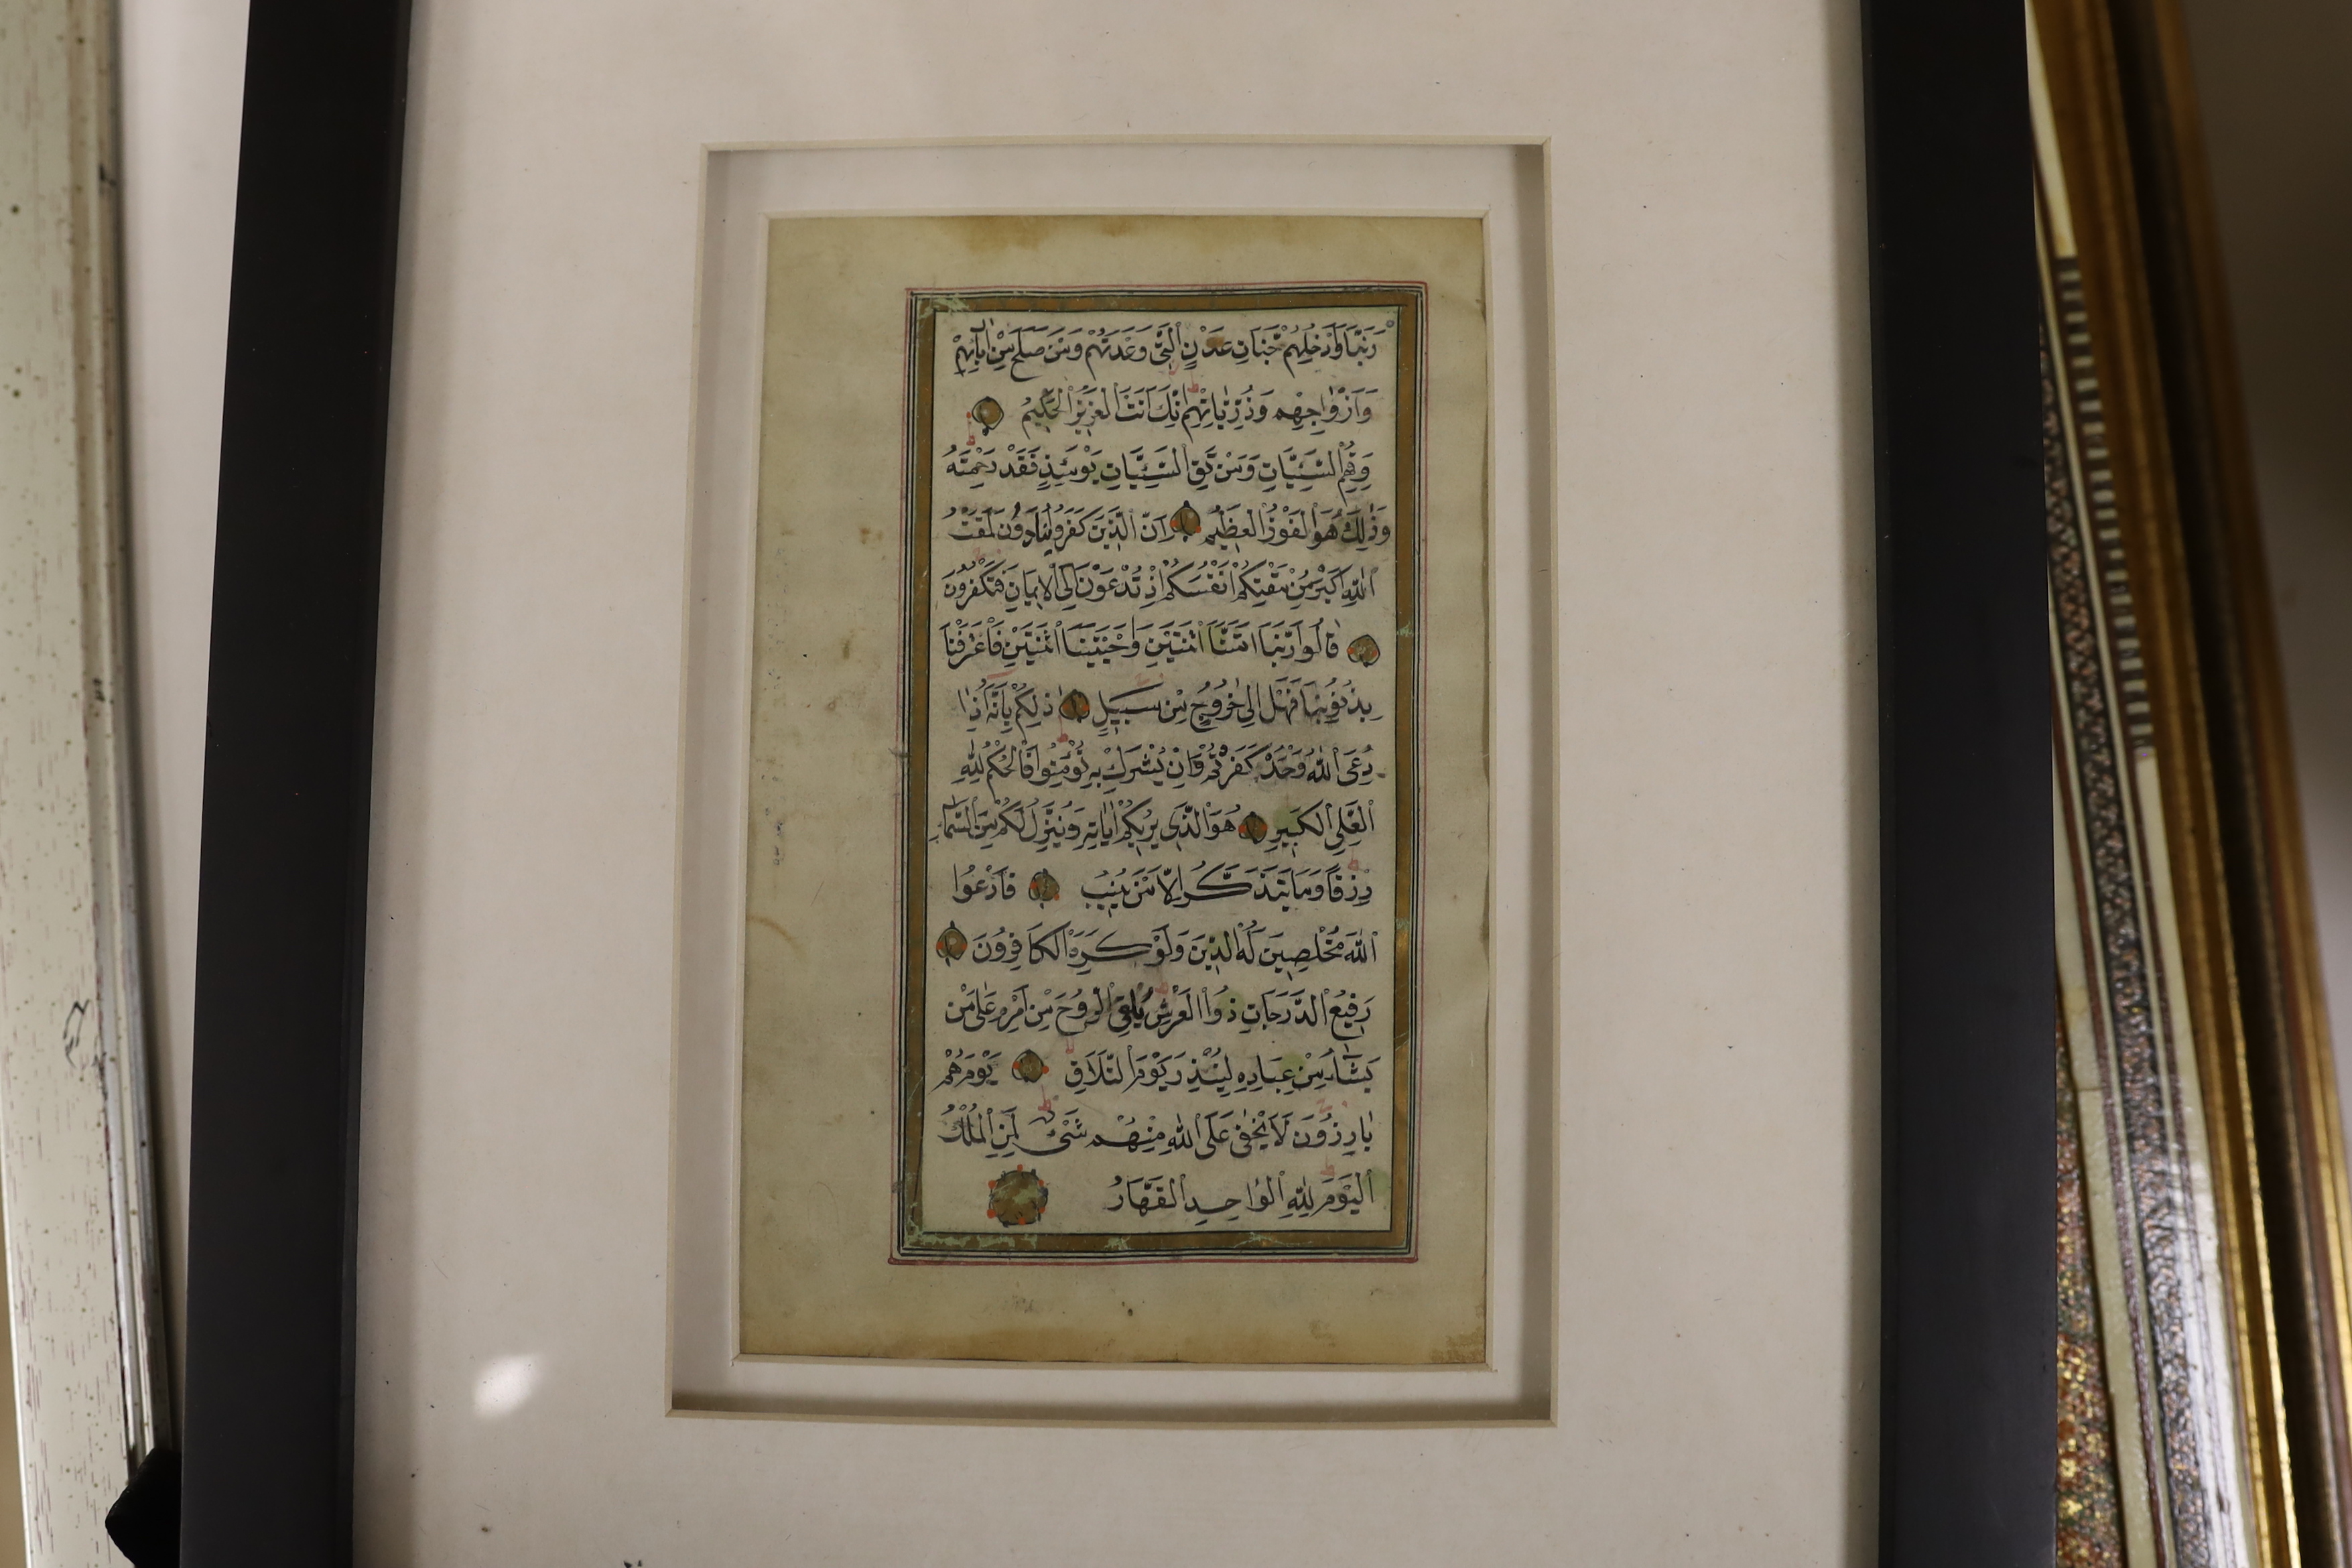 رَبَّنَا وَاَدْخِلْهُمْ جَنَّاتِ عَدْنٍ الَّتِى وَعَدْتَهُمْ وَمَنْ صَلَحَ مِنْ اٰبَائِهِمْ
وَاَزْوَاجِهِمْ وَذُرِّيَّاتِهِمْ اِنَّكَ اَنْتَ الْعَزِيزُ الْحَكِيمُ
وَقِهِمُ السَّيِّئَاتِ وَمَنْ تَقِ السَّيِّئَاتِ يَوْمَئِذٍ فَقَدْ رَحِمْتَهُ
وَذٰلِكَ هُوَ الْفَوْزُ الْعَظِيمُ اِنَّ الَّذِينَ كَفَرُوا يُنَادَوْنَ لَمَقْتُ
اللّٰهِ اَكْبَرُ مِنْ مَقْتِكُمْ اَنْفُسَكُمْ اِذْ تُدْعَوْنَ اِلَى الْاِيمَانِ فَتَكْفُرُونَ
قَالُوا رَبَّنَا اَمَتَّنَا اثْنَتَيْنِ وَاَحْيَيْتَنَا اثْنَتَيْنِ فَاعْتَرَفْنَا
بِذُنُوبِنَا فَهَلْ اِلٰى خُرُوجٍ مِنْ سَبِيلٍ ذٰلِكُمْ بِاَنَّهُ اِذَا
دُعِىَ اللّٰهُ وَحْدَهُ كَفَرْتُمْ وَاِنْ يُشْرَكْ بِهِ تُؤْمِنُوا فَالْحُكْمُ لِلّٰهِ
الْعَلِىِّ الْكَبِيرِ هُوَ الَّذِى يُرِيكُمْ اٰيَاتِهِ وَيُنَزِّلُ لَكُمْ مِنَ السَّمَاءِ
رِزْقًا وَمَا يَتَذَكَّرُ اِلَّا مَنْ يُنِيبُ فَادْعُوا
اللّٰهَ مُخْلِصِينَ لَهُ الدِّينَ وَلَوْ كَرِهَ الْكَافِرُونَ
رَفِيعُ الدَّرَجَاتِ ذُوا الْعَرْشِ يُلْقِى الرُّوحَ مِنْ اَمْرِهِ عَلٰى مَنْ
يَشَاءُ مِنْ عِبَادِهِ لِيُنْذِرَ يَوْمَ التَّلَاقِ يَوْمَ هُمْ
بَارِزُونَ لَا يَخْفٰى عَلَى اللّٰهِ مِنْهُمْ شَىْءٌ لِمَنِ الْمُلْكُ
الْيَوْمَ لِلّٰهِ الْوَاحِدِ الْقَهَّارِ